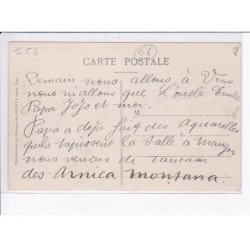 256 06 2
CARTE POSTALE
Demain nous allons à Vens
nous n'allons que L'oncle Emile
Papa JoJo et moi.
M
Papa a déjà fait des Aquarelles
qui tapissent la Salle à Manger
nous venons de
des Arnica Montana.